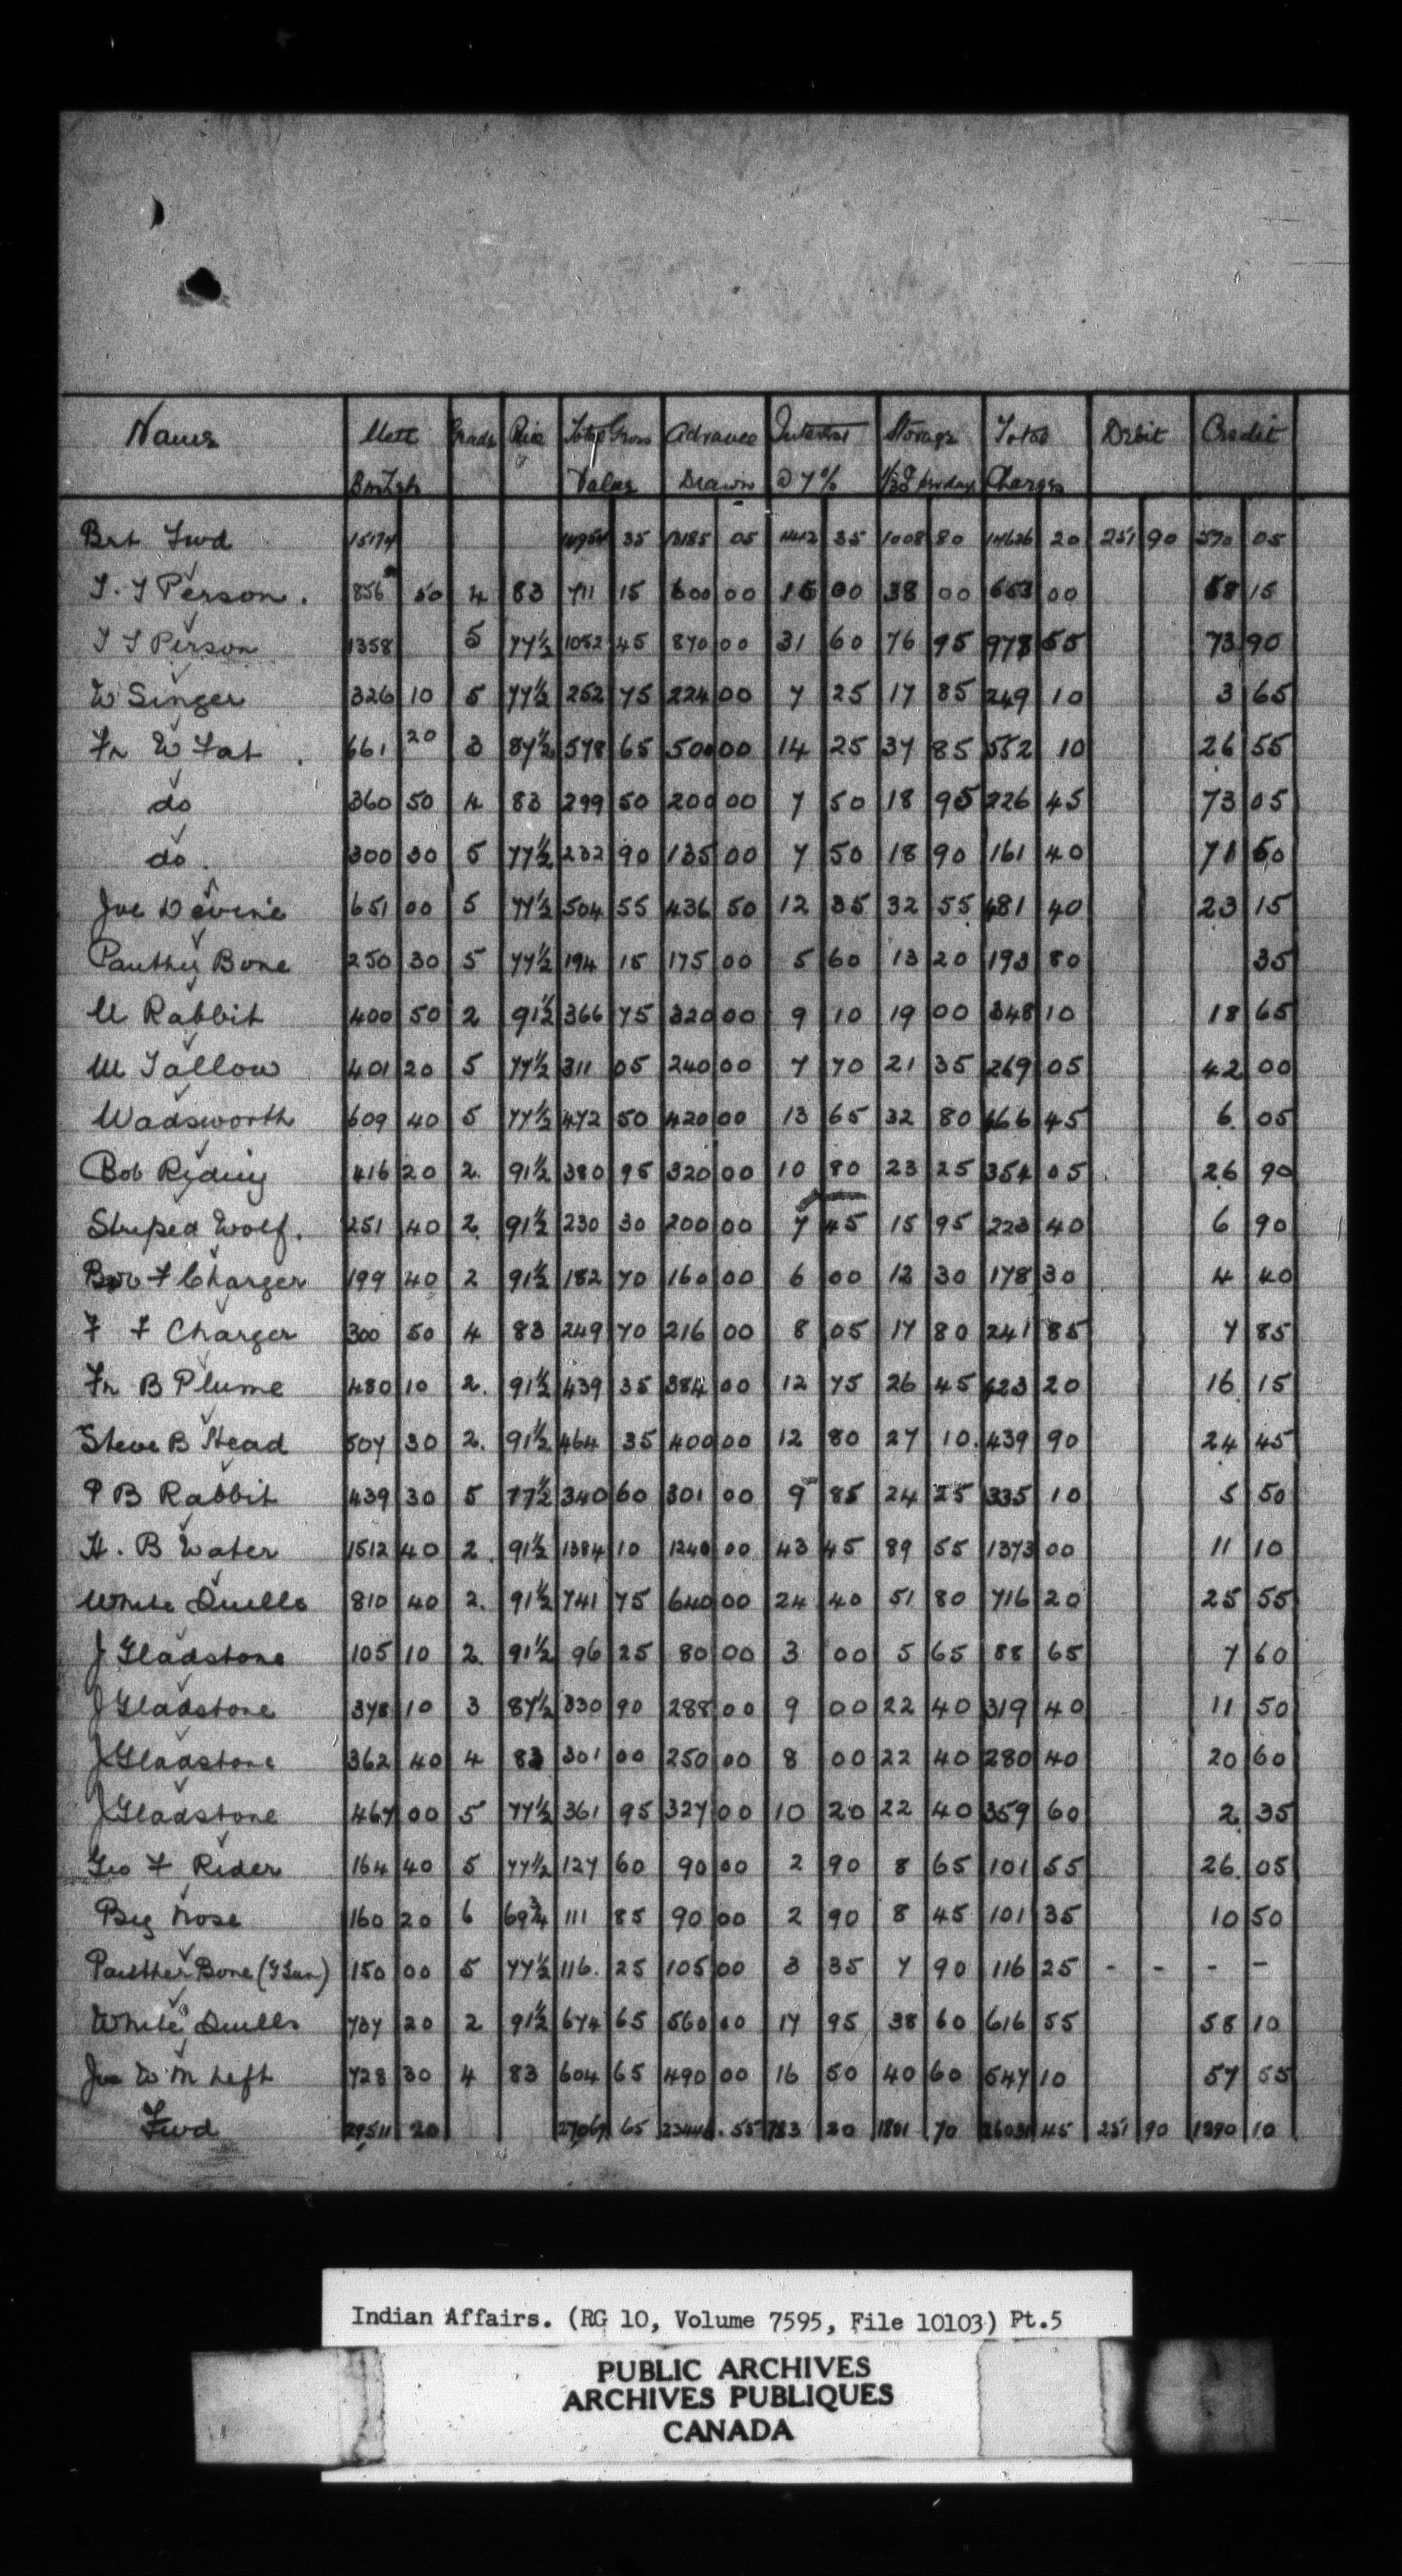 Names Nett Grade Price Total Gross Advance Interest Storage Total Debit Credit
Bushels Value Drawn @ 7% 1/30 per day Charges
Brt Fwd 15174 35 13185 05 442 35 1008 80 14636 20 251 90 570 05
T. F Person. 856 50 4 83 711 15 600 00 15 00 38 00 653 00 58 15
T F Person 1358 5 77½ 1052 45 870 00 31 60 76 95 978 55 73 90
W Singer 326 10 5 77½ 252 75 224 00 7 25 17 85 249 10 3 65
Fr W Fat 661 20 3 87½ 578 65 500 00 14 25 37 85 552 10 26 55
do 360 50 4 83 299 50 200 00 7 50 18 95 226 45 73 05
do. 300 30 5 77½ 232 90 135 00 7 50 18 90 161 40 71 50
Joe Devine 651 00 5 77½ 504 55 436 50 12 35 32 55 481 40 23 15
Panther Bone 250 30 5 77½ 194 15 175 00 5 60 13 20 193 80 35
M Rabbit 400 50 2 91½ 366 75 320 00 9 10 19 00 348 10 18 65
M Tallow 401 20 5 77½ 311 05 240 00 7 70 21 35 269 05 42 00
Wadsworth 609 40 5 77½ 472 50 420 00 13 65 32 80 466 45 6 05
Bob Riding 416 20 2. 91½ 380 95 320 00 10 80 23 25 354 05 26 90
Striped Wolf. 251 40 2. 91½ 230 30 200 00 7 45 15 95 223 40 6 90
F Charger 199 40 2 91½ 182 70 160 00 6 00 12 30 178 30 4 40
F F Charger 300 50 4 83 249 70 216 00 8 05 17 80 241 85 7 85
Fr B Plume 480 10 2. 91½ 439 35 384 00 12 75 26 45 423 20 16 15
Steve B Head 507 30 2. 91½ 464 35 400 00 12 80 27 10. 439 90 24 45
P B Rabbit 439 30 5 77½ 340 60 301 00 9 85 24 25 335 10 5 50
H. B Water 1512 40 2. 91½ 1384 10 1240 00 43 45 89 55 1373 00 11 10
White Quills 810 40 2. 91½ 741 75 640 00 24 40 51 80 716 20 25 55
J Gladstone 105 10 2. 91½ 96 25 80 00 3 00 5 65 88 65 7 60
J Gladstone 378 10 3 87½ 330 90 288 00 9 00 22 40 319 40 11 50
J Gladstone 362 40 4 83 301 00 250 00 8 00 22 40 280 40 20 60
J Gladstone 467 00 5 77½ 361 95 327 00 10 20 22 40 359 60 2 35
Geo F Rider 164 40 5 77½ 127 60 90 00 2 90 8 65 101 55 26 05
Big Nose 160 20 6 69¾ 111 85 90 00 2 90 8 45 101 35 10 50
Panther Bone 150 00 5 77½ 116. 25 105 00 3 35 7 90 116 25 - - - -
White Quills 737 20 2 91½ 674 65 560 00 17 95 38 60 616 55 58 10
Joe W M Left 728 30 4 83 604 65 490 00 16 50 40 60 547 10 57 55
Fwd 29511 20 27069 65 23446.55 783 20 1801 70 26031 45 251 90 1290 10
Indian Affairs. (RG 10, Volume 7595, File 10103) Pt.5
PUBLIC ARCHIVES
ARCHIVES PUBLIQUES
CANADA